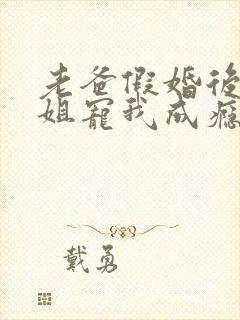 老爸假婚後
姐寵我成癮
戴勇